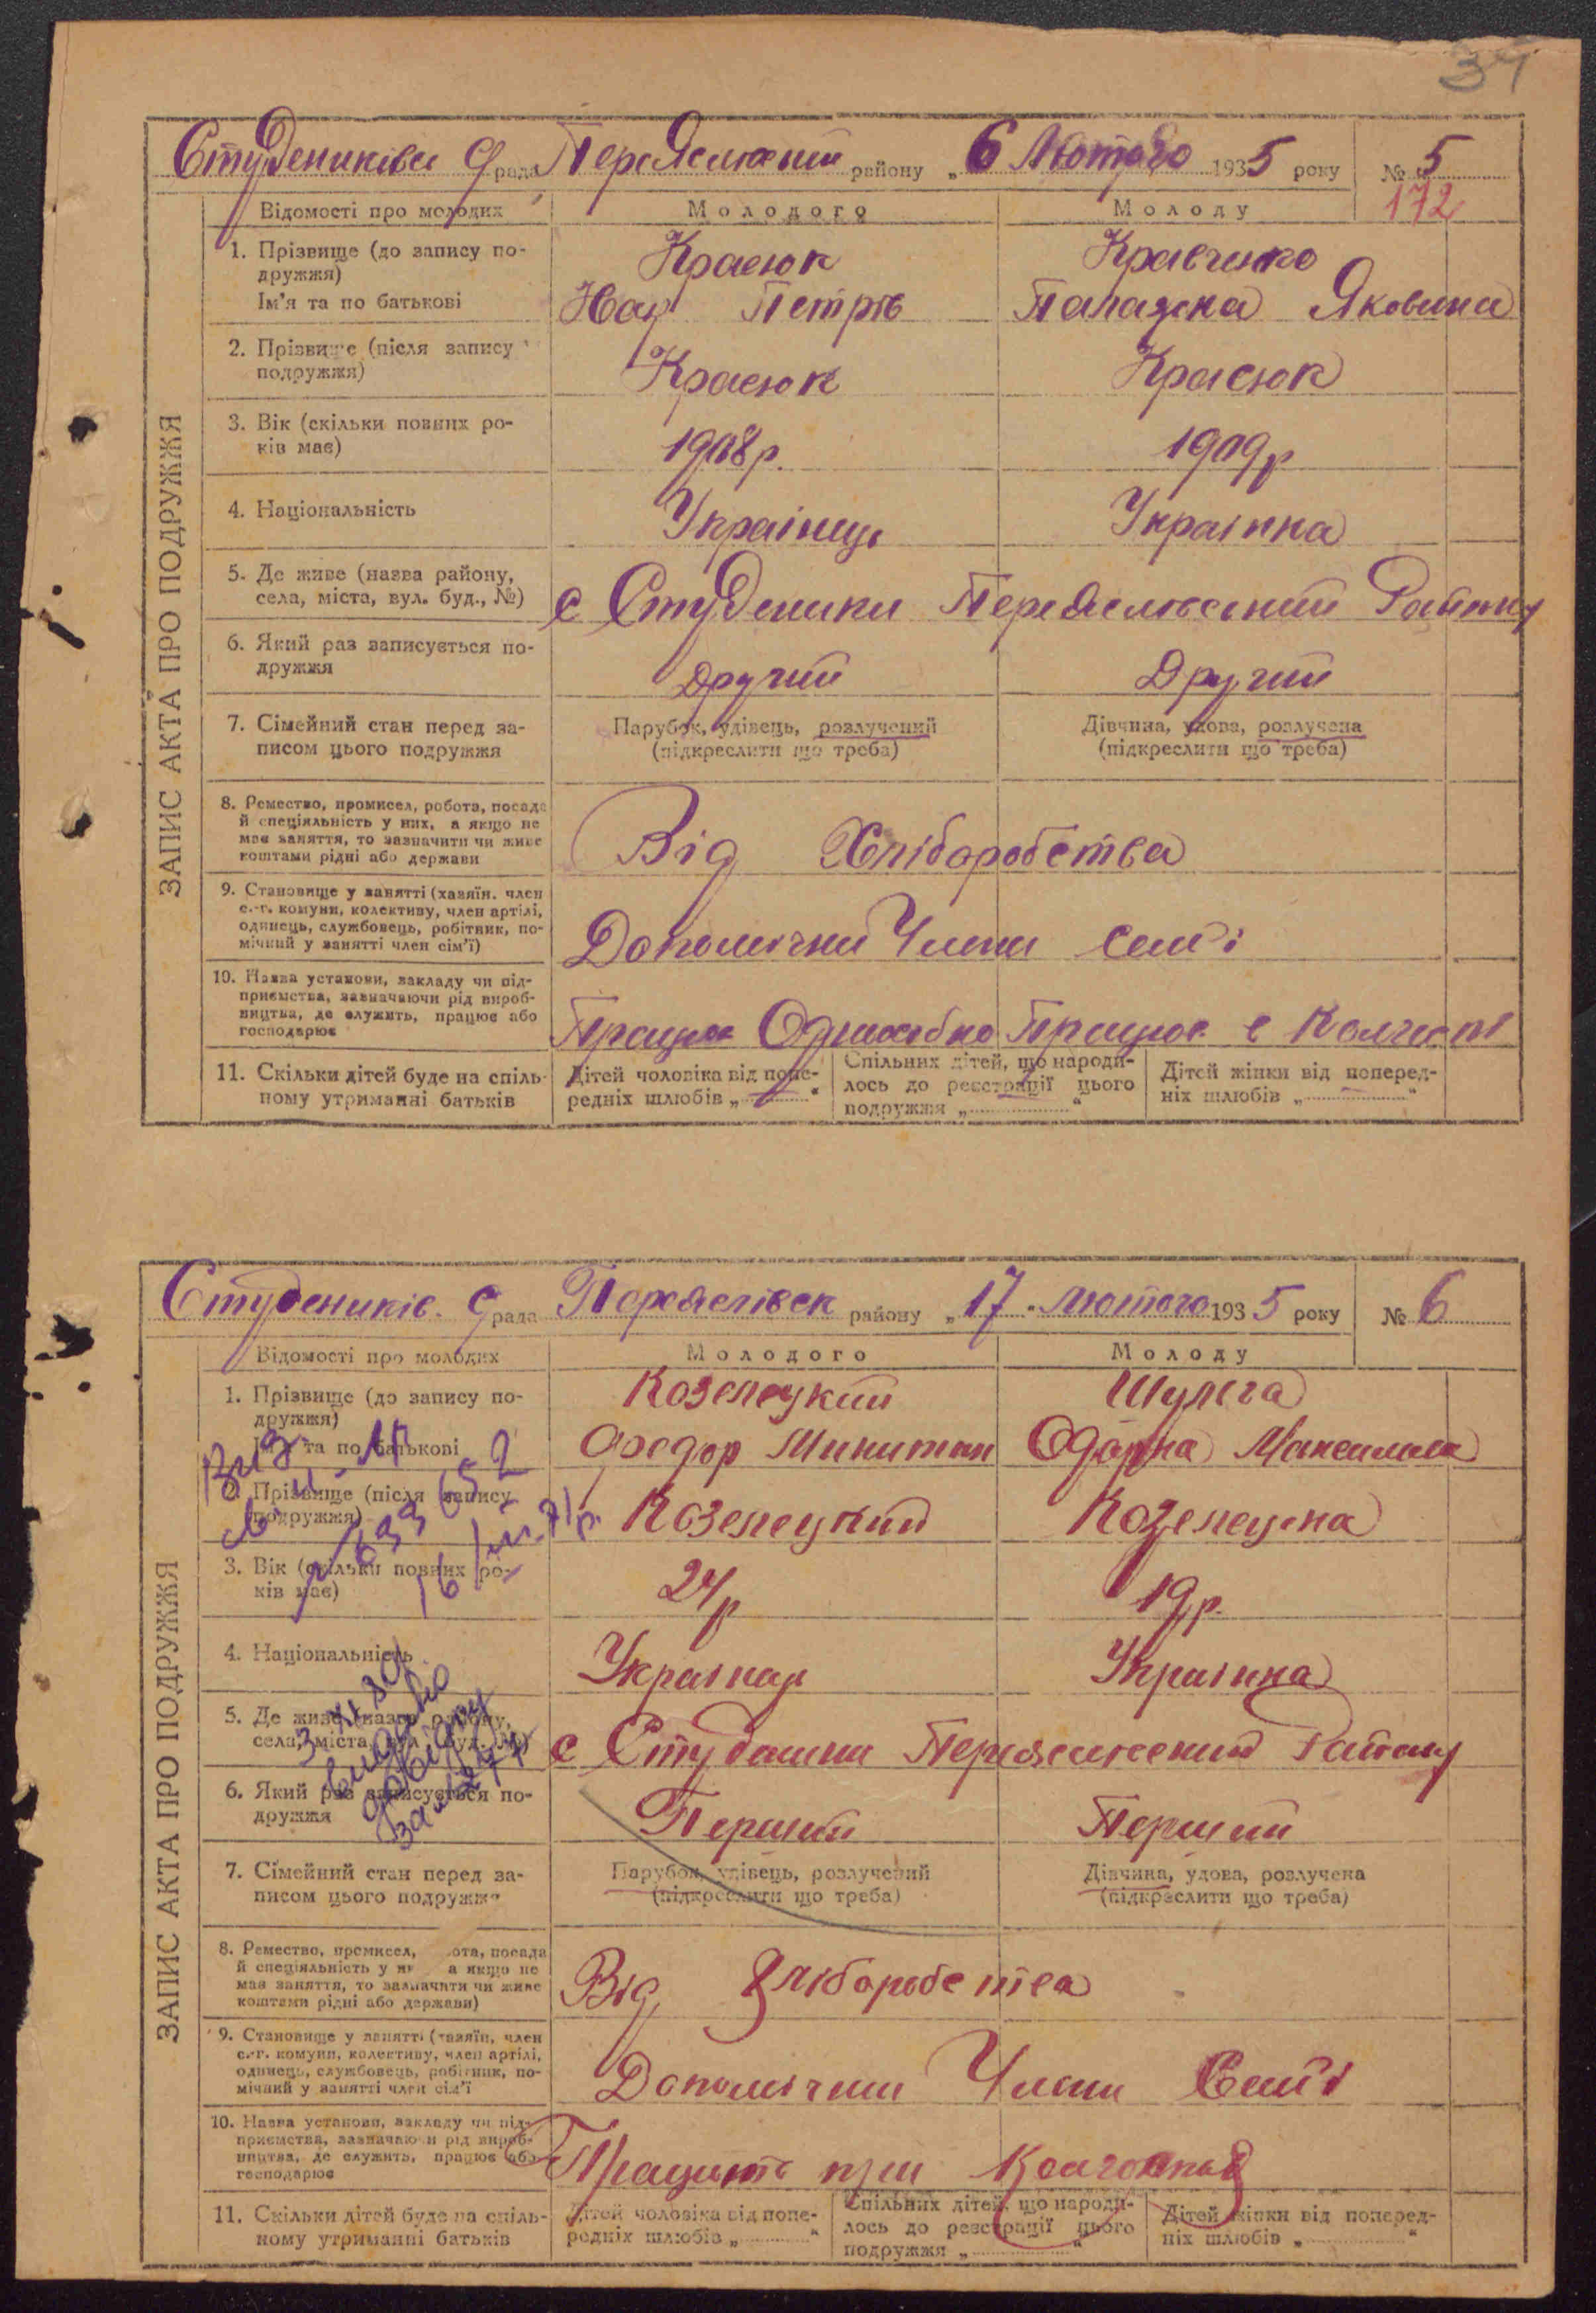 34
Студениківс с рада Переяслівський району „6 Лютого 1935 року № 5
172
ЗАПИС АКТА ПРО ПОДРУЖЖЯ
Відомості про молодих Молодого Молоду
1. Прізвище (до запису по-
дружжя) Красюк Кравченко
Ім'я та по батькові Петрів Палажка Яковина
2. Прізвище (після запису
подружжя) Красюк Красюк
3. Вік (скільки повних ро-
ків має) 1908р. 1909р
4. Національність Українець Українка
5. Де живе (назва району,
села, міста, вул. буд., №) с Студеники Переяслівський Району
6. Який раз записується по-
дружжя Другий Другий
7. Сімейний стан перед за- Парубок, удівець, розлучений Дівчина, удова, розлучена
писом цього подружжя (підкреслити що треба) (підкреслити що треба)
8. Ремество, промисел, робота, посада
й спеціяльність у них, а якщо не
має заняття, то зазначити чи живе
коштами рідні або держави Від Хліборобства
9. Становище у занятті (хазяїн, член
с.-г. комуни, колективу, член артілі,
одинець, службовець, робітник, по-
мічний у занятті член сім'ї) Допомічний Члени Сем'ї
10. Назва установи, закладу чи під-
приємства, зазначаючи рід вироб-
ництва, де служить, працює або
господарює Працює Одноосібно Працює в Колгоспі
11. Скільки дітей буде на спіль-
ному утриманні батьків
Дітей чоловіка від попе-
редніх шлюбів „ “
Спільних дітей, що народи-
лось до реєстрації цього
подружжя „ “
Дітей жінки від поперед-
ніх шлюбів „ “
Студеників. с рада Переяслівськ району „17“ Лютого 1935 року № 6
ЗАПИС АКТА ПРО ПОДРУЖЖЯ
Відомості про молодих Молодого Молоду
1. Прізвище (до запису по-
дружжя) Козелецкий Шульга
Ім'я та по батькові Федор Микитин Одарка Максимова
2. Прізвище (після запису
подружжя) Козелецкий Козелецка
3. Вік (скільки повних ро-
ків має) 24р 19р.
4. Національність Українець Українка
5. Де живе (назва району,
села, міста, вул. буд. №) с Студеники Переяслівський Району
видано
довідку
6. Який раз записується по-
дружжя Перший Перший
7. Сімейний стан перед за- Парубок, удівець, розлучений Дівчина, удова, розлучена
писом цього подружжя (підкреслити що треба) (підкреслити що треба)
8. Ремество, промисел, робота, посада
й спеціяльність у них, а якщо не
має заняття, то зазначити чи живе
коштами рідні або держави) Від Хліборобства
9. Становище у занятті (хазяїн, член
с.-г. комуни, колективу, член артілі,
одинець, службовець, робітник, по-
мічний у занятті член сім'ї Допомічни Члени Семї
10. Назва установи, закладу чи під-
приємства, зазначаючи рід вироб-
ництва, де служить, працює або
господарює Працують при Колгоспах
11. Скільки дітей буде на спіль-
ному утриманні батьків
Дітей чоловіка від попе-
редніх шлюбів „ “
Спільних дітей, що народи-
лось до реєстрації цього
подружжя „ “
Дітей жінки від поперед-
ніх шлюбів „ “